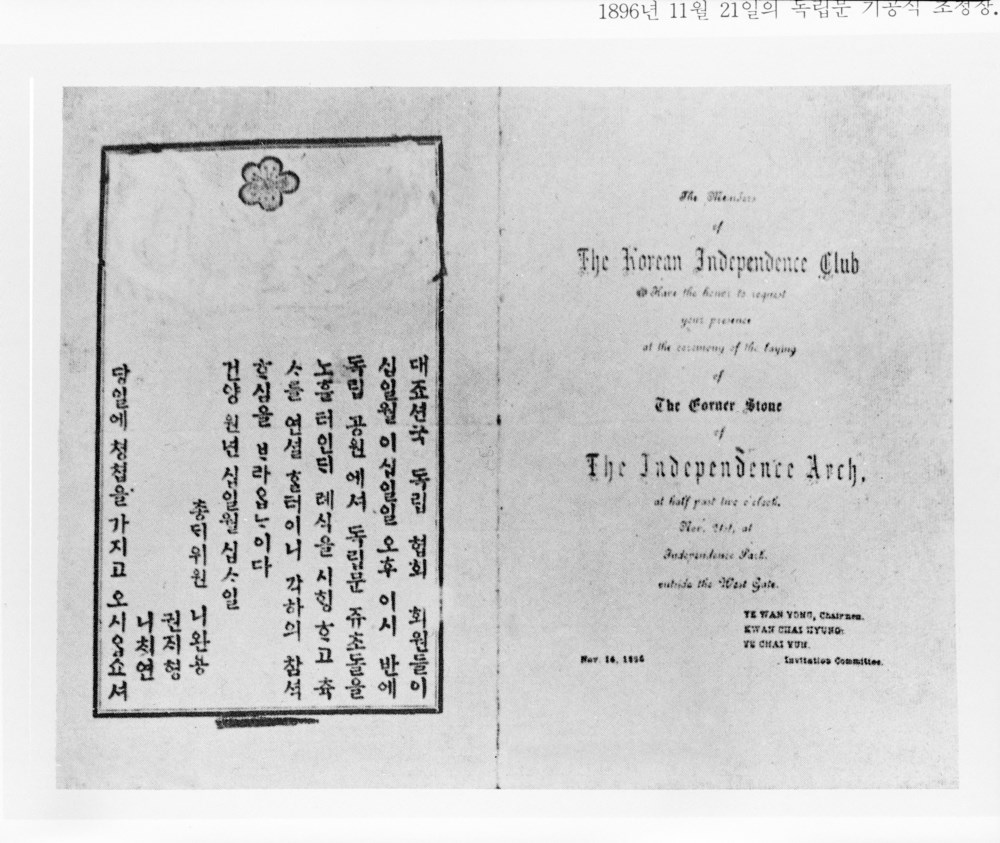 1896년 11월 21일의 독립문 기공식 초청장.
대죠션국 독립 협회 회원들이
십일월 이십일일 오후 이시 반에
독립 공원에셔 독립문 쥬초돌을
노흘터인ᄃᆡ 례식을 시ᄒᆡᆼᄒᆞ고 츅
ᄉᆞ를 연셜ᄒᆞᆯ터이니 각하의 참셕
ᄒᆞ심을 ᄇᆞ라ᄋᆞᆸᄂᆞ이다
건양 원년 십일월 십ᄉᆞ일
총ᄃᆡ위원 니완용
권지형
니치연
당일에 쳥첩을 가지고 오시ᄋᆞᆸ쇼셔
The Members
of
The Korean Independence Club
Have the honor to request
your presence
at the ceremony of the laying
of
The Corner Stone
of
The Independence Arch,
at half past two o'clock,
Nov. 21st, at
Independence Park,
outside the West Gate.
YE WAN YONG, Chairman.
KWAN CHAI HYUNG.
YE CHAI YUN.
Invitation Committee.
Nov. 14, 1896